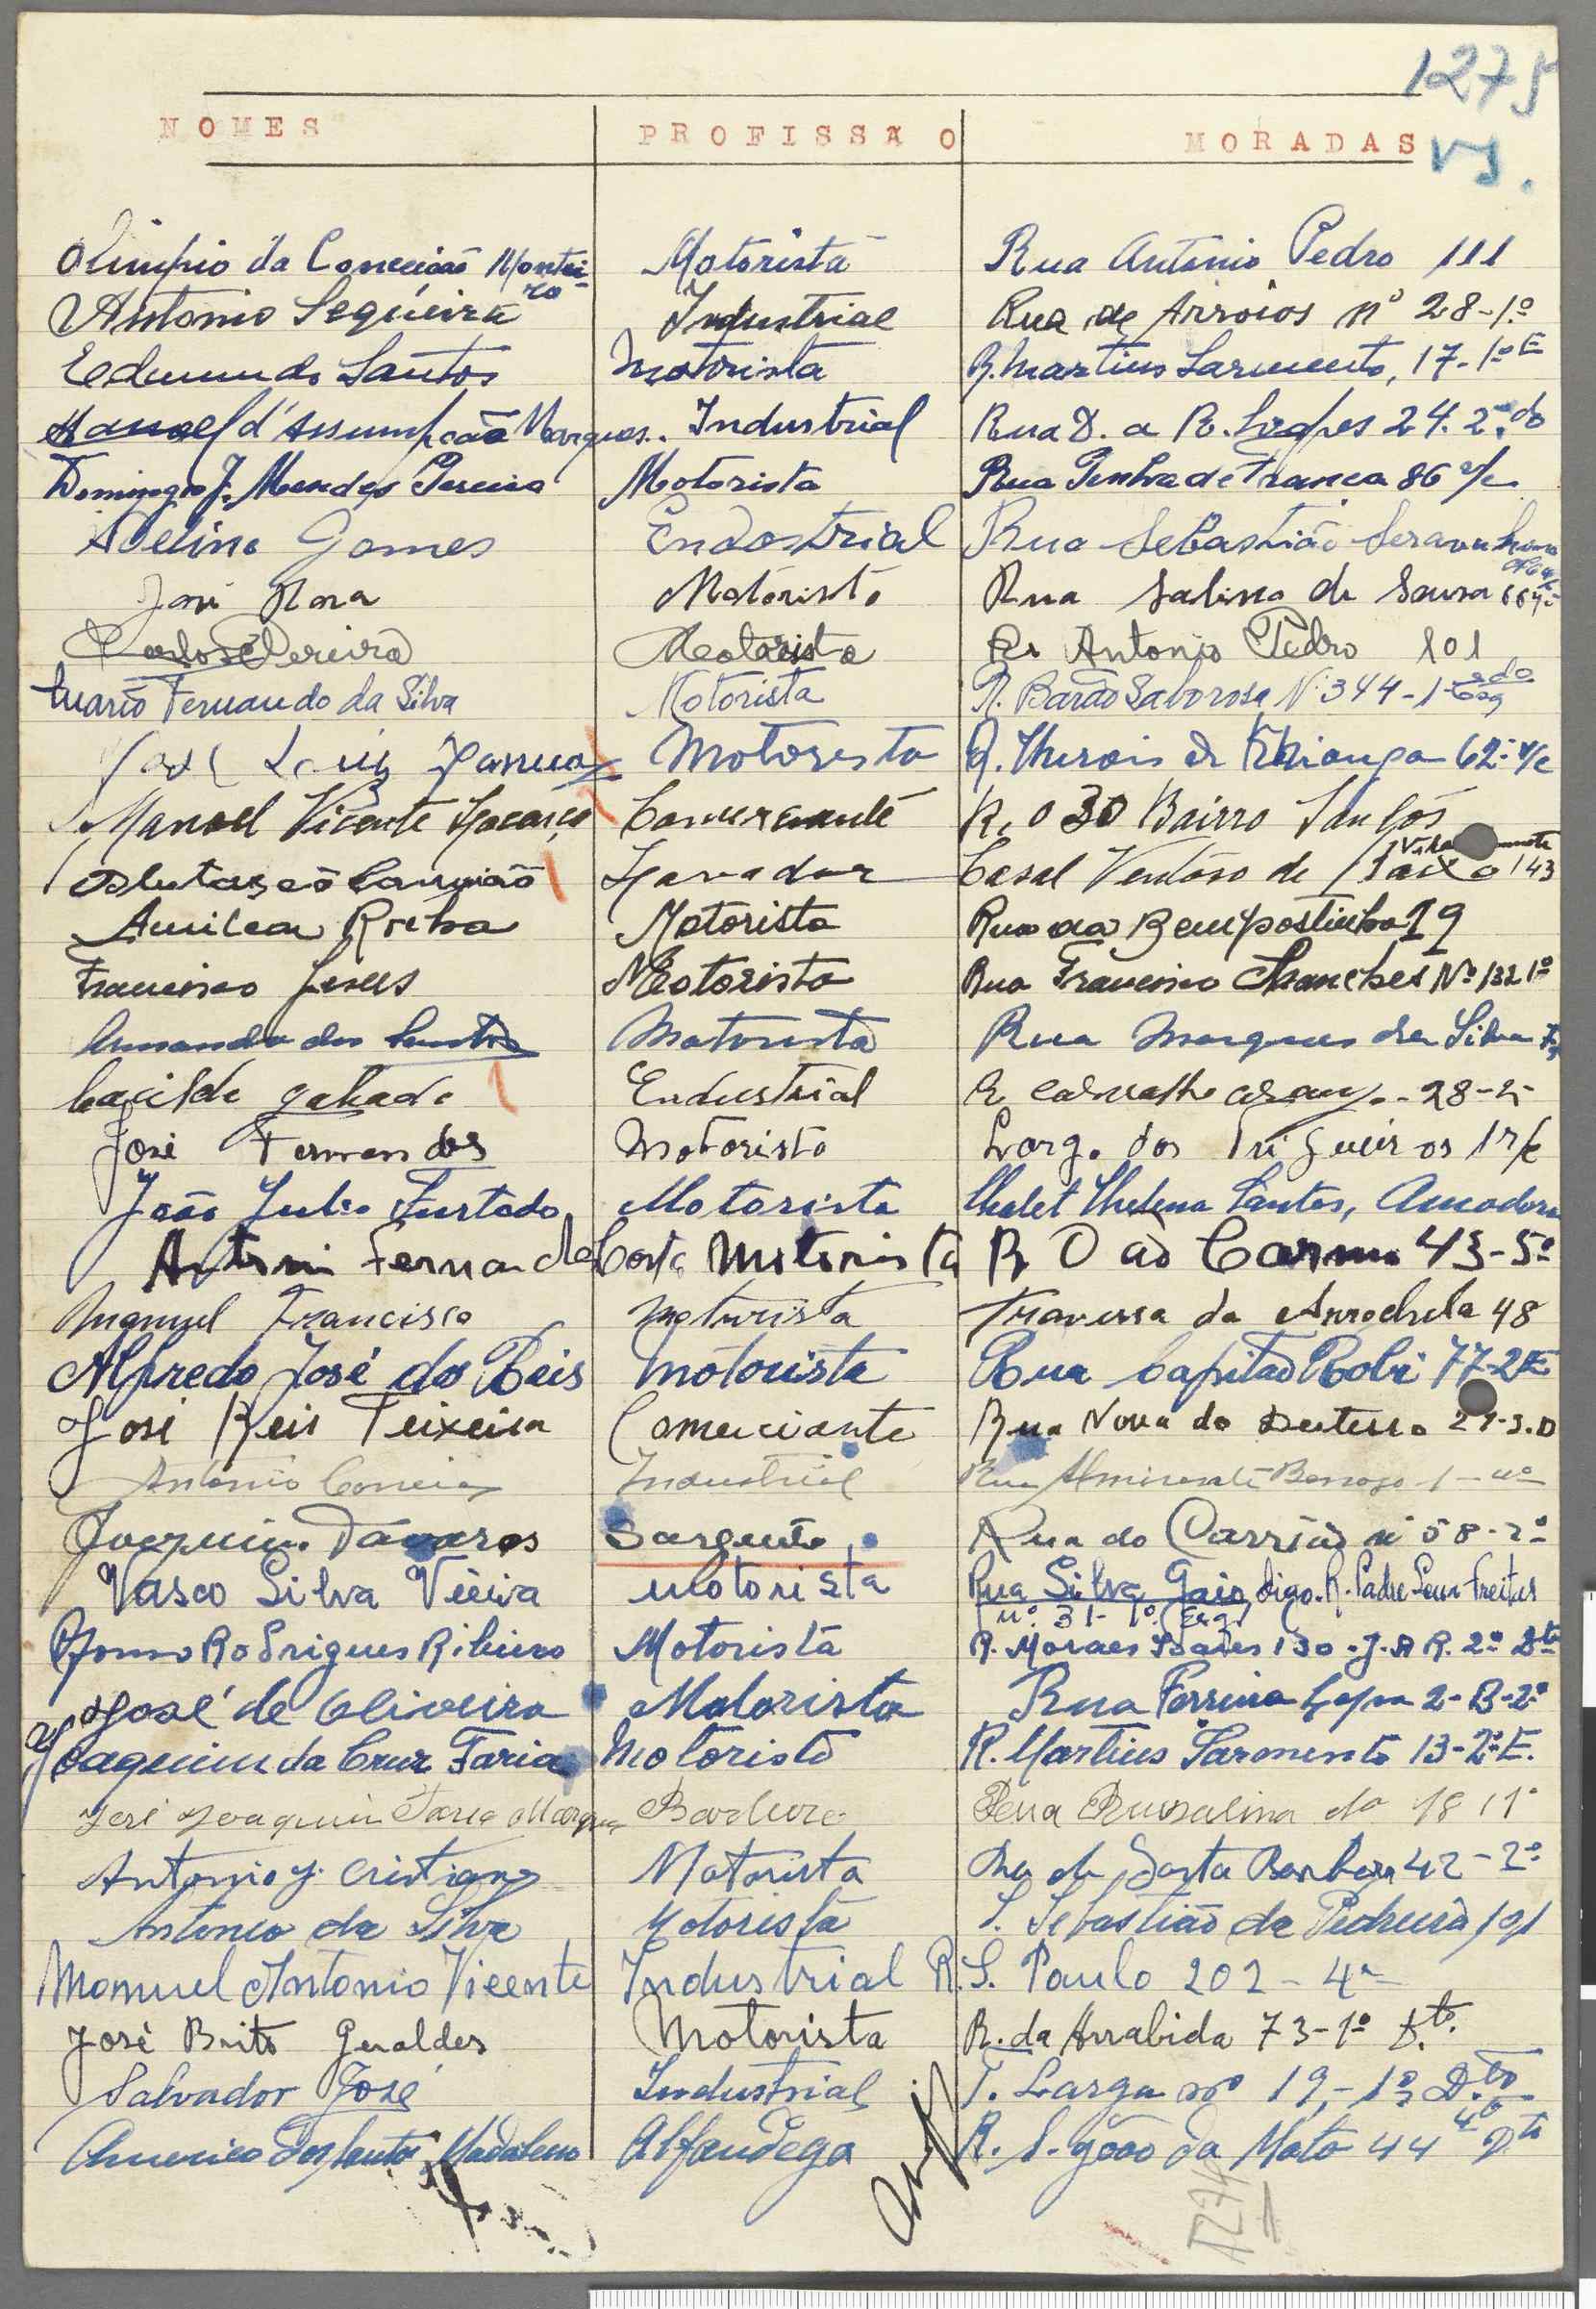 1275
vs.
NOMES PROFISSÃO MORADAS
Olimpio da Conceição Montei-
ro Motorista Rua Antonio Pedro 111
Antonio Seqúeira Industrial Rua de Arroios nº 28-1.º
Edmundo Santos Motorista R. Martins Sarmento, 17-1º E
Manoel d'Assumpção Marques. Industrial Rua D. a R. Lopes 24. 2.º do
Domingos J. Mendes Pereira Motorista Rua Penha de França 86 r/c
Adelino Gomes Endostrial Rua Sebastião
José Rosa Motorista Rua Sabino de Sousa
Carlos Pereira Motorista R. Antonio Pedro 101
Mario Fernando da Silva Motorista R. Barão Saborosa Nº 344-1
José Luiz Motorista R. 62- r/c
Manoel Vicente Comerciante R. O 30 Bairro Santos
Casal Ventoso de Baixo 143
Amilcar Rocha Motorista Rua da Bempostinha 19
Francisco Jesus Motorista Rua Francisco Sanches Nº 132 1º
Armando dos Santos Motorista Rua Marques da Silva
Endustrial R Carvalho Araujo - 28-2-
José Fernandes Motorista Larg. dos Trigueiros 1 r/c
João Julio Furtado Motorista Chalet Helena Santos, Amadora
Antoni Fernandes Costa Motorista R O do Carmo 43-5º
Manuel Francisco Moturista Travessa da Anrochela 48
Alfredo José dos Reis Motorista Rua Capitão Robi 77-2E
José Reis Teixeira Comerciante Rua Nova do Desterro 21-3.D
Antonio Correia Industrial Rua Almirante Barroso 1-
Joaquim Tavares Sargento Rua do Carrião nº 58-2º
Vasco Silva Vieira Motorista Rua Silva Gaio, digo. R. Padre Sena Freitas
nº. 31- 1º. (Esq.)
Afonso Rodrigues Ribeiro Motorista R. Moraes Soares 130-J. A R. 2º Dto
José de Oliveira Motorista Rua Ferreira Lapa 2-B-2º
Joaquim da Cruz Faria Motorista R. Martins Sarmento 13-2º E.
José Joaquim Faria Marques Barbeiro 18 1 1º
Antonio J. Cristiano Motorista Rua de Santa Barbara 42-2º
Antonio da Silva Motorista S. Sebastião da Pedreira 191
Manuel Antonio Vicente Industrial R. S. Paulo 202-4º
José Brito Geraldes Motorista R. da Arrabida 73-1º Dto.
Salvador José Industrial T. Larga nº 19,-1º D.to
Americo dos Santos Madaleno Alfandega R. S. João da Mata 44 4º Dto